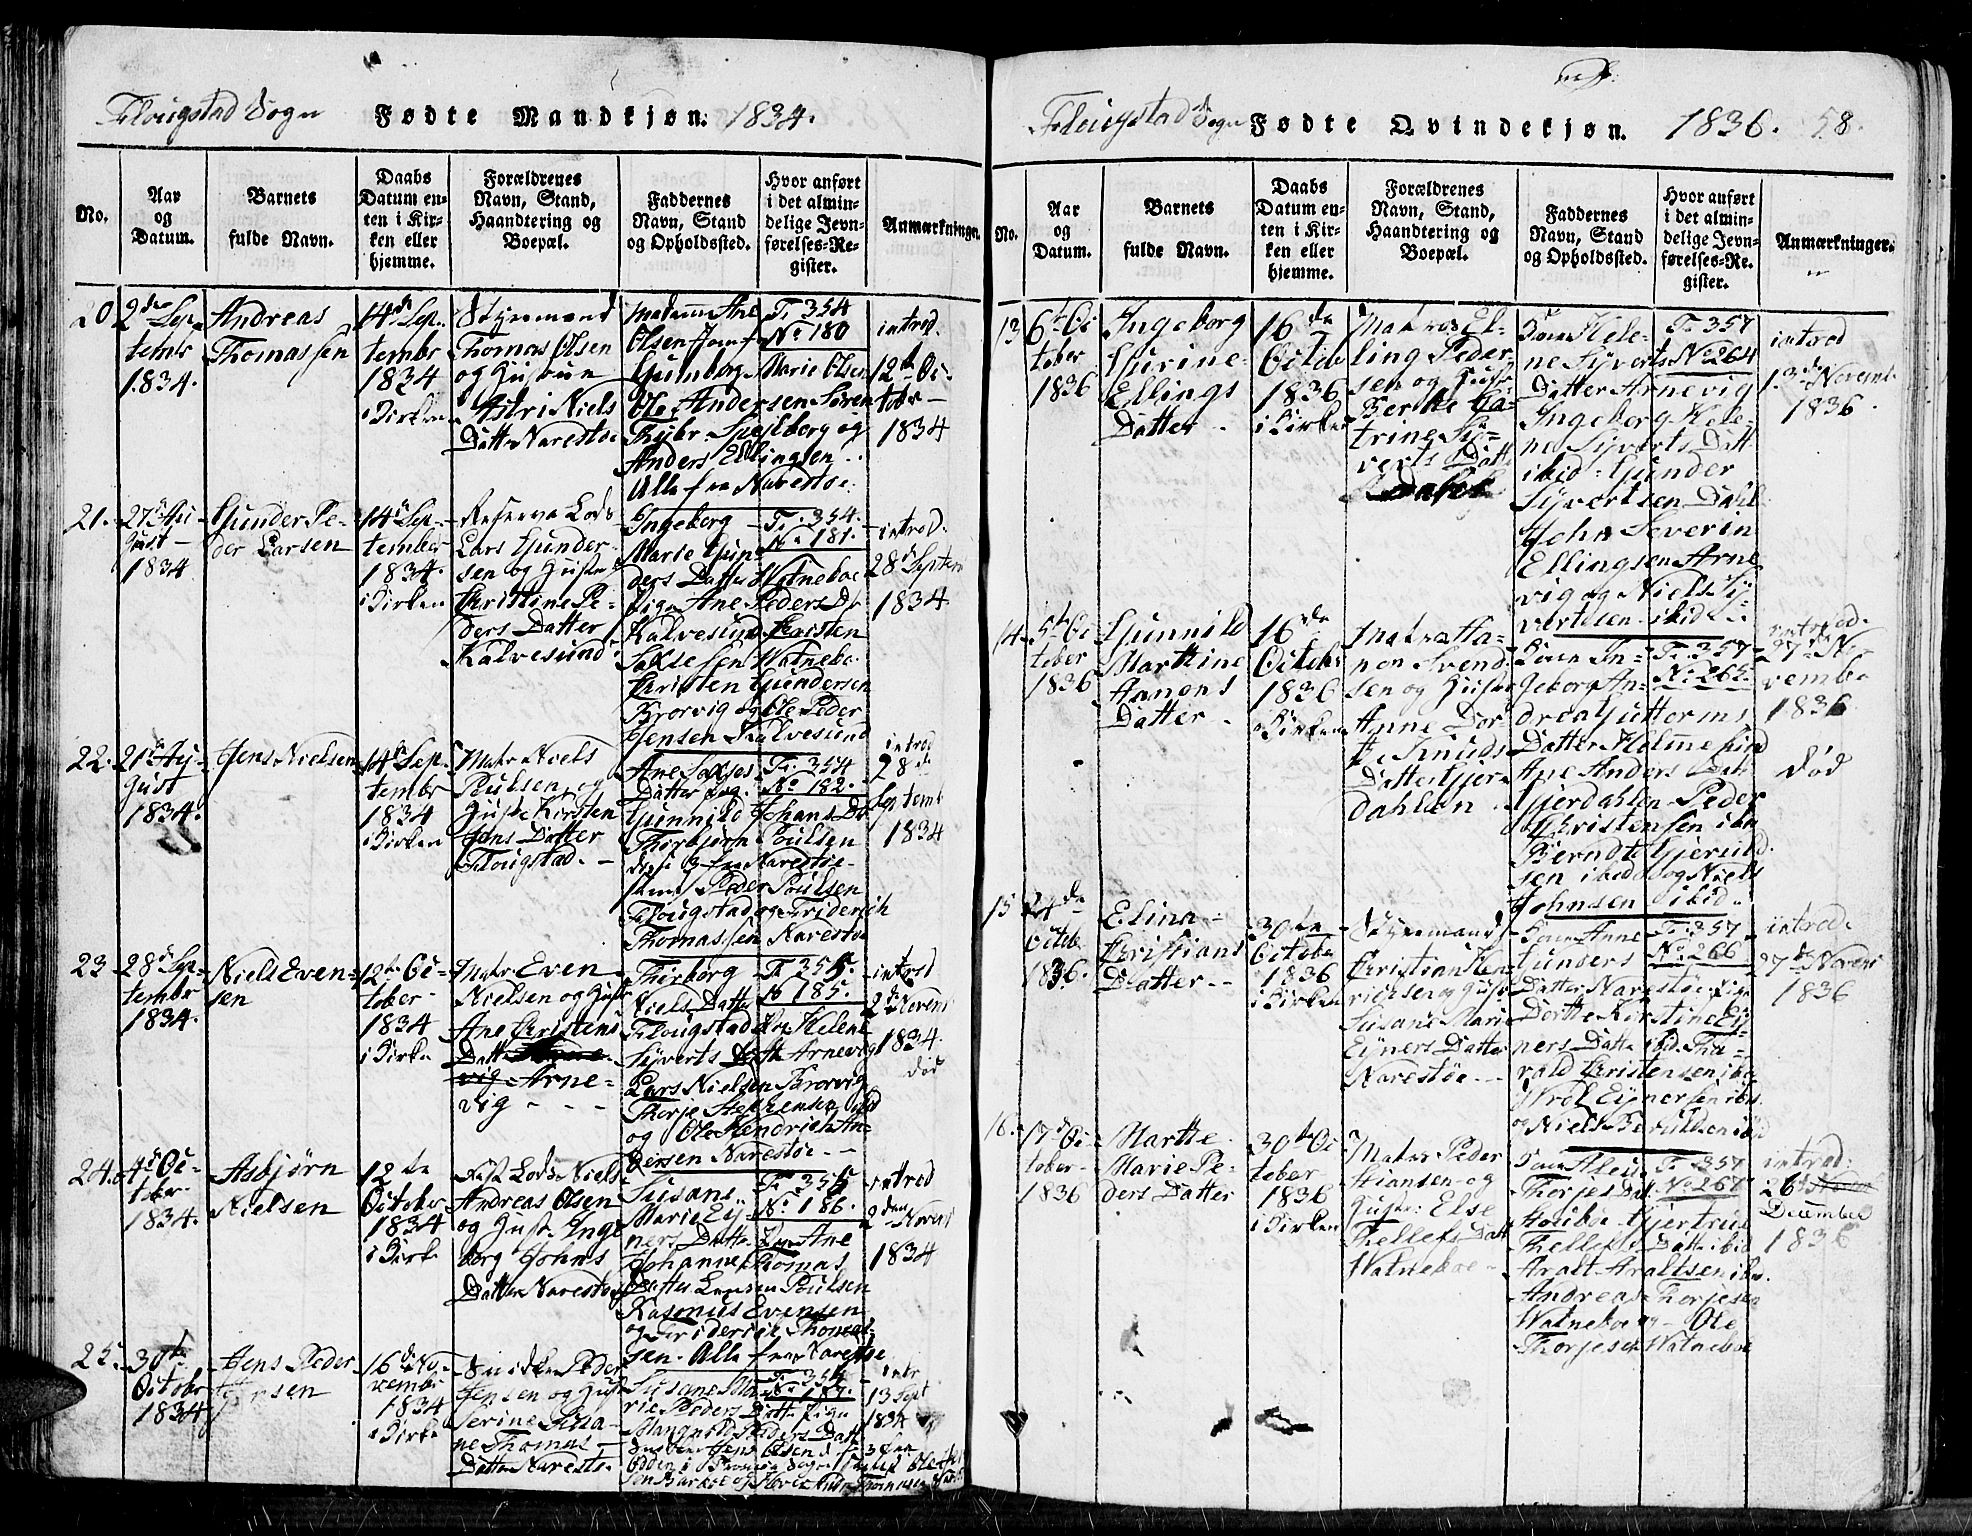 Flougstad Sogn Fødte Mandkjøn. 1834.
No.
Aar
og
Datum.
Barnets
fulde Navn.
Daabs
Datum en-
ten i Kir-
ken eller
hjemme.
Forældrenes
Navn, Stand,
Haandtering og
Boepæl.
Faddernes
Navn, Stand
og Opholdssted.
Hvor anført
i det almin-
delige Jevn-
førelses-Re-
gister.
Anmærkninger.
20.
2den Sep-
tembr
1834.
Andreas
Thomassen
14d Sep-
tembr
1834
i Kirken
Styrmand
Thomas Olsen
og Hustrue
Astri Niels
Datter Narestøe
Madam Ane
Olsen Jomf.
Gunborg Marie Olsen
Ole Andersen Søren
Thybr Spejlborg og
Anders Ellingsen
Alle fra Narestøe.
F. 354
No 180
introd.
12te Oc-
tobr
1834
21.
27d Au-
gust
1834
Gunder Pe-
der Larsen
14d Sep-
tember
1834.
i Kirken
Reserve Lods
Lars Gunder-
sen og Hustr
Christine Pe-
ders Datter
Kalvesund
Ingeborg
Marie Gun-
ders Datter Watneboe
Pige Ane Peders Dr
Kalvesund Christen
Saxesen Watnebo
Christen Gundersen
Brorvig og Ole Peder
Jensen Kalvesund
F. 354.
No 181.
introd.
28d Septem
1834.
22.
21d Au-
gust
1834.
Jens Nielsen
14d Sep-
tembr
1834
i Kirken
Matr Niels
Poulsen og
Hustr Kirsten
Jens Datter
Flougstad.
Ane Saxses
Datter
Gunnild Johans Dr
Thorbjørn Poulsen
disse 3 fra Narestøe
samt Peder Poulsen
Flougstad og Friderich
Thomassen Narestøe
F. 354
No 182.
introd
28d
Septemb
1834
23
28d Sep-
tembr
1834.
Niels Even-
sen
12te Oc-
tober
1834
i Kirke
Matr Even
Nielsen og Hustr
Ane Christens
Datt Arne-
vig Arne-
vig
Thorborg
Niels Datter
Flougstad Helene
Syverts Dattr Arnevig
Lars Nielsen Brorvig
Thorje Stephensen ibid
og Ole Hendrich An-
dersen Narestøe
F. 355.
No 185.
introd
2d Novem
1834.
død
24.
4d Oc-
tober
1834.
Asbjørn
Nielsen
12te
October
1834
i Kirke
Fast Lods Niels
Andreas Olsen
og Hustr Inge
borg Johns
Datter Narestøe
Susane
Marie Ey-
ners Datter Ane
Johanne Thomas
Datter Poulsen
Rasmus Evensen
og Friderich Thomas-
sen. Alle fra Narestøe
F. 355
No 186.
introd
2den
Novem
1834
25.
30te
Octobr
1834
Jens Peder
Jensen
16d No-
vembr
1834
i Kirke
Snidker Peder
Jensen og Hustr
Serine Susa-
ne Thomas
Datter Narestøe
Susane Ma-
rie Peders Datter Pige
Mangnild Peders Datt
Jens Olsen
F. 355
No 187.
intr
13 Sept
1834
Flougstad Sogn Fødte Qvindekjøn. 1836. 58.
No.
Aar
og
Datum.
Barnets
fulde Navn.
Daabs
Datum en-
ten i Kir-
ken eller
hjemme.
Forældrenes
Navn, Stand,
Haandtering og
Boepæl.
Faddernes
Navn, Stand
og Opholdssted.
Hvor anført
i det almin-
delige Jevn-
førelses-Re-
gister.
Anmærkninger.
13
6te Oc
tober
1836
Ingeborg
Gurine
Ellings
Datter
16de
Octobr
1836
i Kirken
Matros El-
ling Peder-
sen og Hustr
Berthe Ca-
trine Sy-
verts Datt
Kone Hele-
ne Syverts
Datter Arnevig
Ingeborg Hele-
ne Syverts Datt
ibid: Gunder
Syvertsen Dahl
John Severin
Ellingsen Arne
vig og Niels Sy-
vertsen ibid
F. 357
No 264
introd
13de Novemb.
1836.
14.
5te Oc
tober
1836
Gunnild
Marthine
Aanons
Datter
16de
Octobr
1836
i Kirken
Matr Aa-
non Svend-
sen og Hustr
Anne Dor
the Knuds
Datter Gjer-
dahlen
Kone In-
geborg An-
drea Guttorms
Datter Holmesund
Ane Anders Dat
Gjerdahlen Peder
Christensen ibid
Berndt Gjeruld-
sen ibid og Niels
Johnsen ibid
F. 357
No 265
introd.
27de No-
vembr
1836
død
15
24de
Octob
1836.
Elina
Christians
Datter
30te
October
1836
i Kirken
Styrmand
Christian Hen
richsen og Hustr
Susane Marie
Eyners Datter
Narestøe
Kone Anne
Gunders
Datter Narestøe Pige
Dorthe Kirstine Ey-
ners Datte ibid Tha-
rald Christensen ibid
Wrol Eynersen ibid
og Niels Berulfsen ibid
F. 357
No 266
introd.
27de Novem
1836
16.
17d Oc-
tober
1836
Marthe
Marie Pe-
ders Datter
30te Oc
tober
1836
i Kirken
Matr Peder
Stiansen og
Hustr: Else
Thellefs Datt
Watneboe
Kone Aleth
Thorjes Dat.
Gjertrue
Thellefs Datte ibid
Aralt Araltsen ibid.
Andreas Thorjesen
Watneboe og Ole
Thorjesen Watneboe
F. 357
No 267
introd:
26d
December
1836